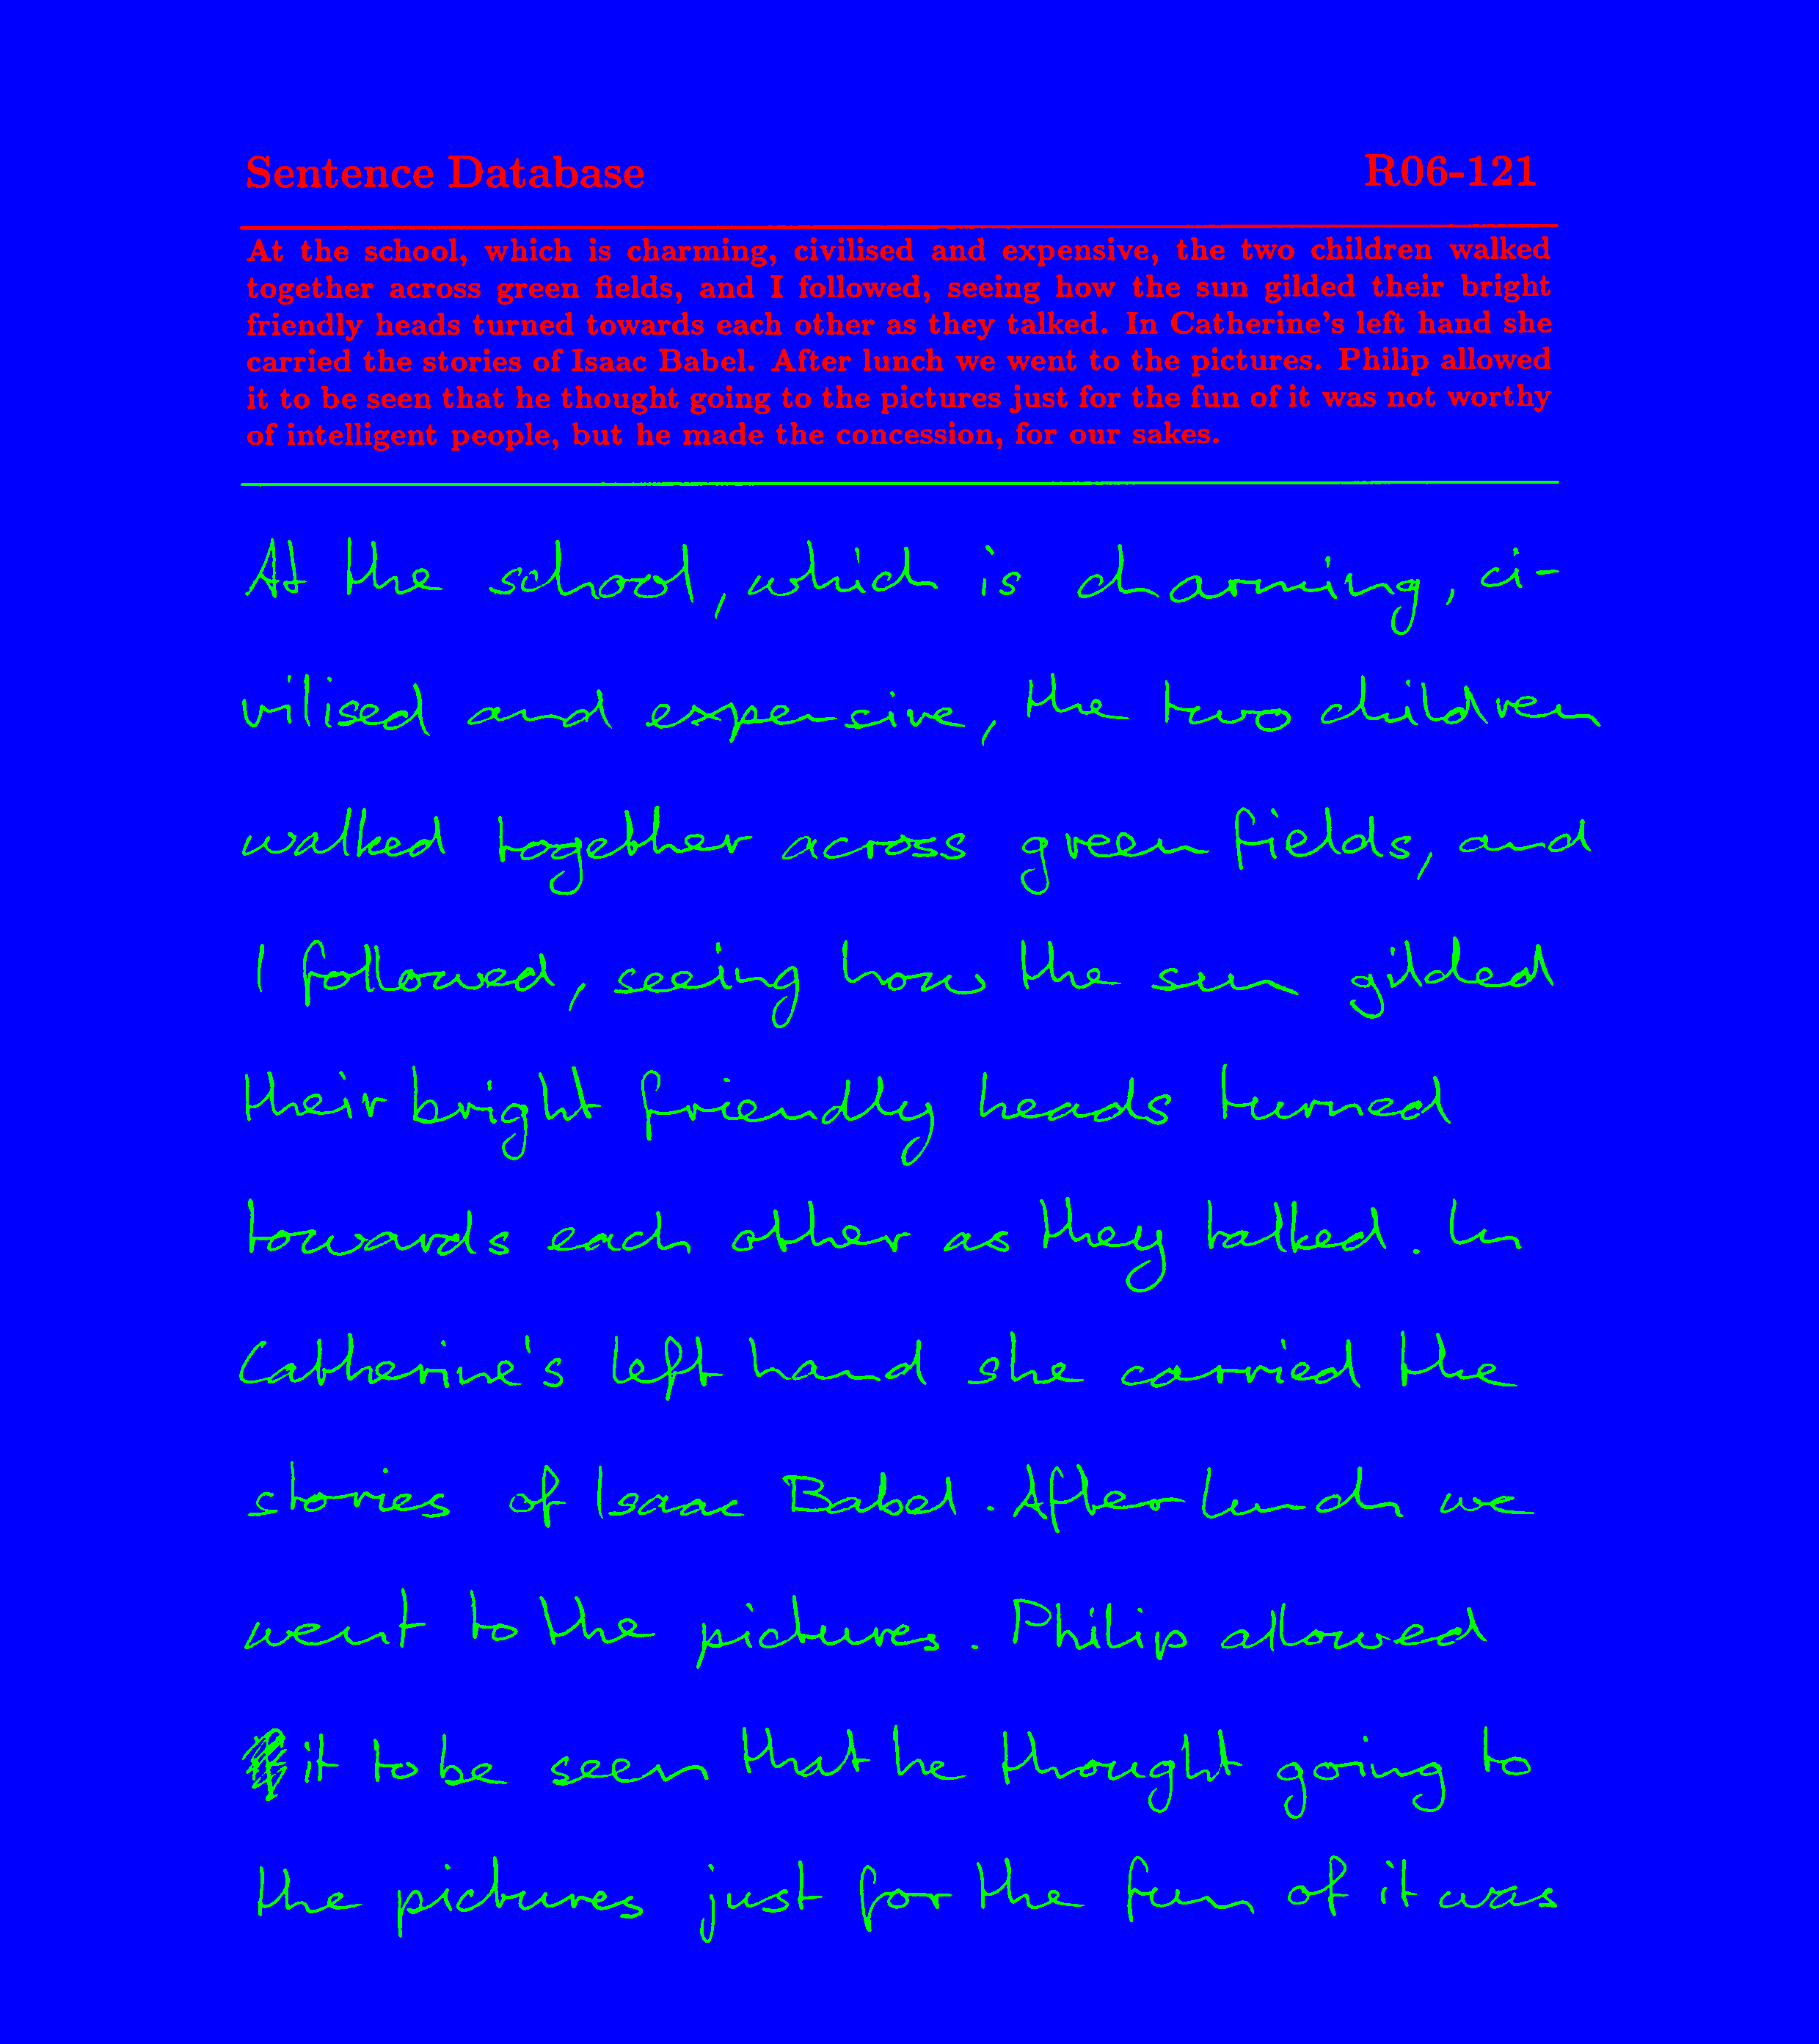 Sentence Database R06-121
At the school, which is charming, civilised and expensive, the two children walked
together across green fields, and I followed, seeing how the sun gilded their bright
friendly heads turned towards each other as they talked. In Catherine's left hand she
carried the stories of Isaac Babel. After lunch we went to the pictures. Philip allowed
it to be seen that he thought going to the pictures just for the fun of it was not worthy
of intelligent people, but he made the concession, for our sakes.
At the school, which is charming, ci-
vilised and expensive, the two children
walked together across green fields, and
I followed, seeing how the sun gilded
their bright friendly heads turned
towards each other as they talked. In
Catherine's left hand she carried the
stories of Isaac Babel. After lunch we
went to the pictures. Philip allowed
it to be seen that he thought going to
the pictures just for the fun of it was